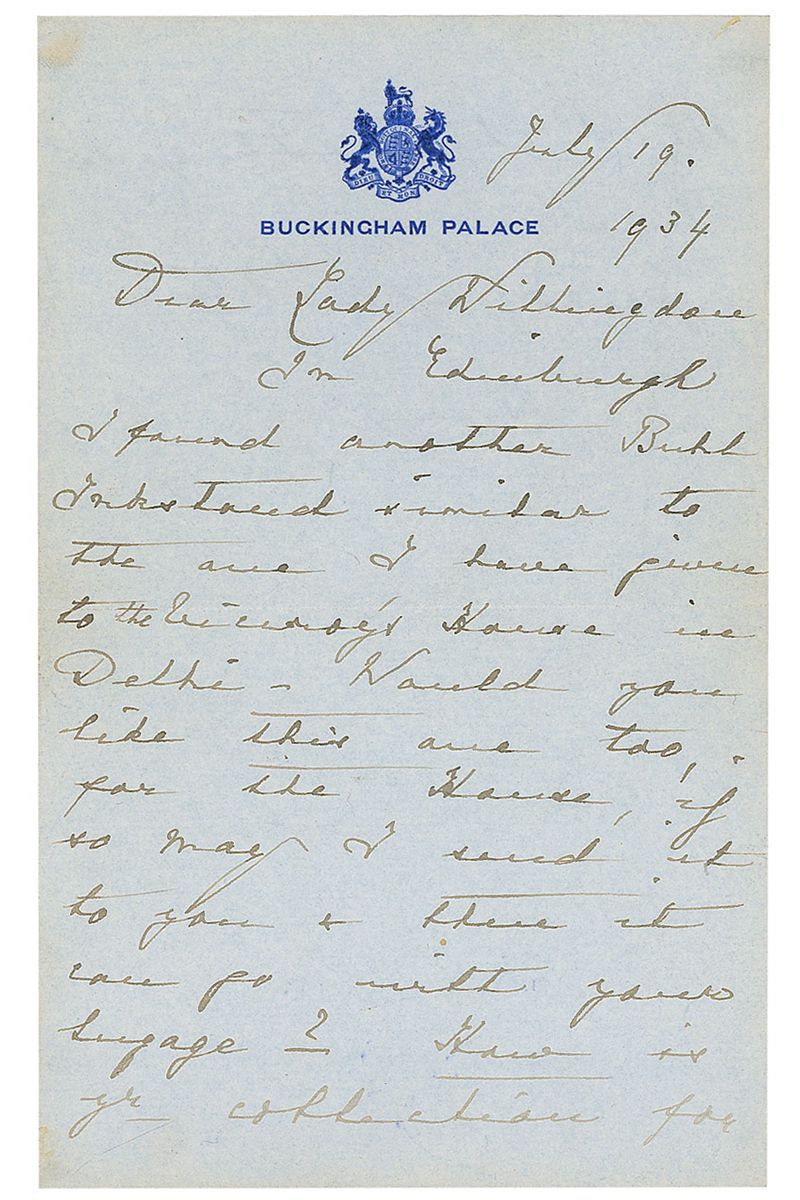 July 19.
DIEU ET MON DROIT
BUCKINGHAM PALACE
1934
Dear Lady Willingdon
In Edinburgh
I found another Buhl
Inkstand similar to
the one I have given
to the Viceroy's House in
Delhi - Would you
like this one too, -
for the House, if
so may I send it
to you & then it
can go with your
lugage? How is
yr collection for